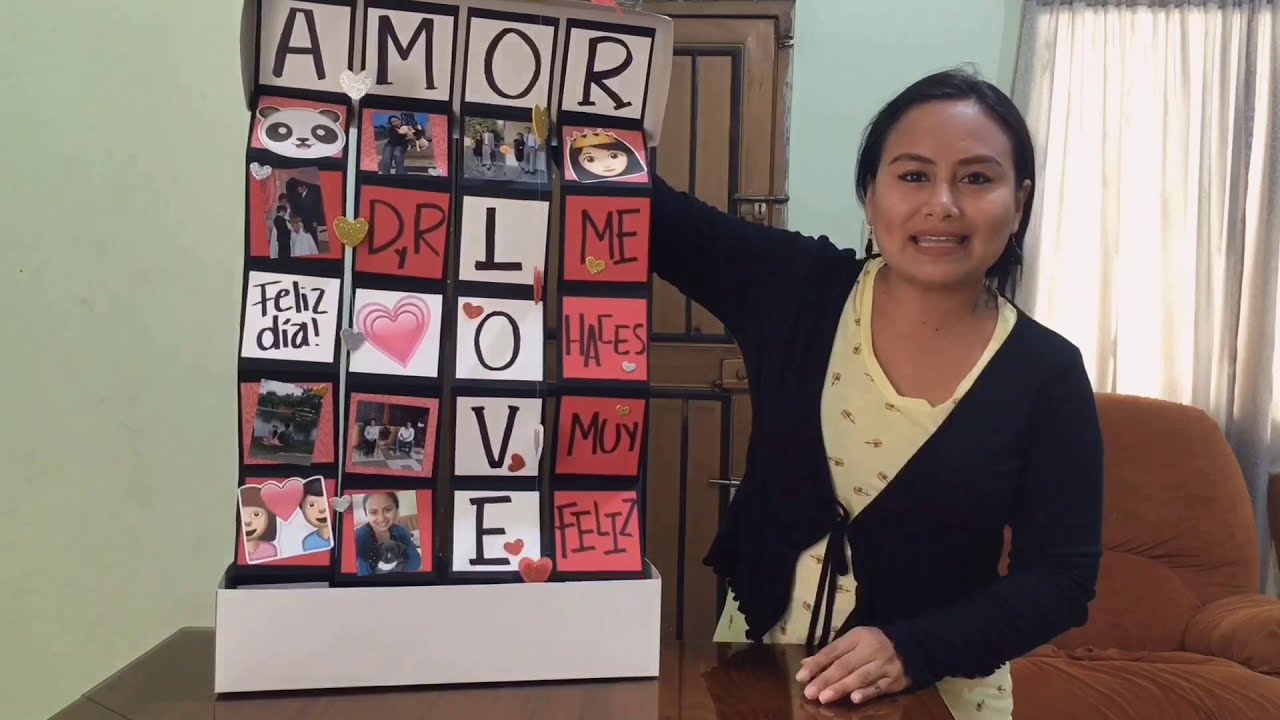 AMOR
D y R
Feliz
día!
LOVE
ME
HACES
MUY
FELIZ